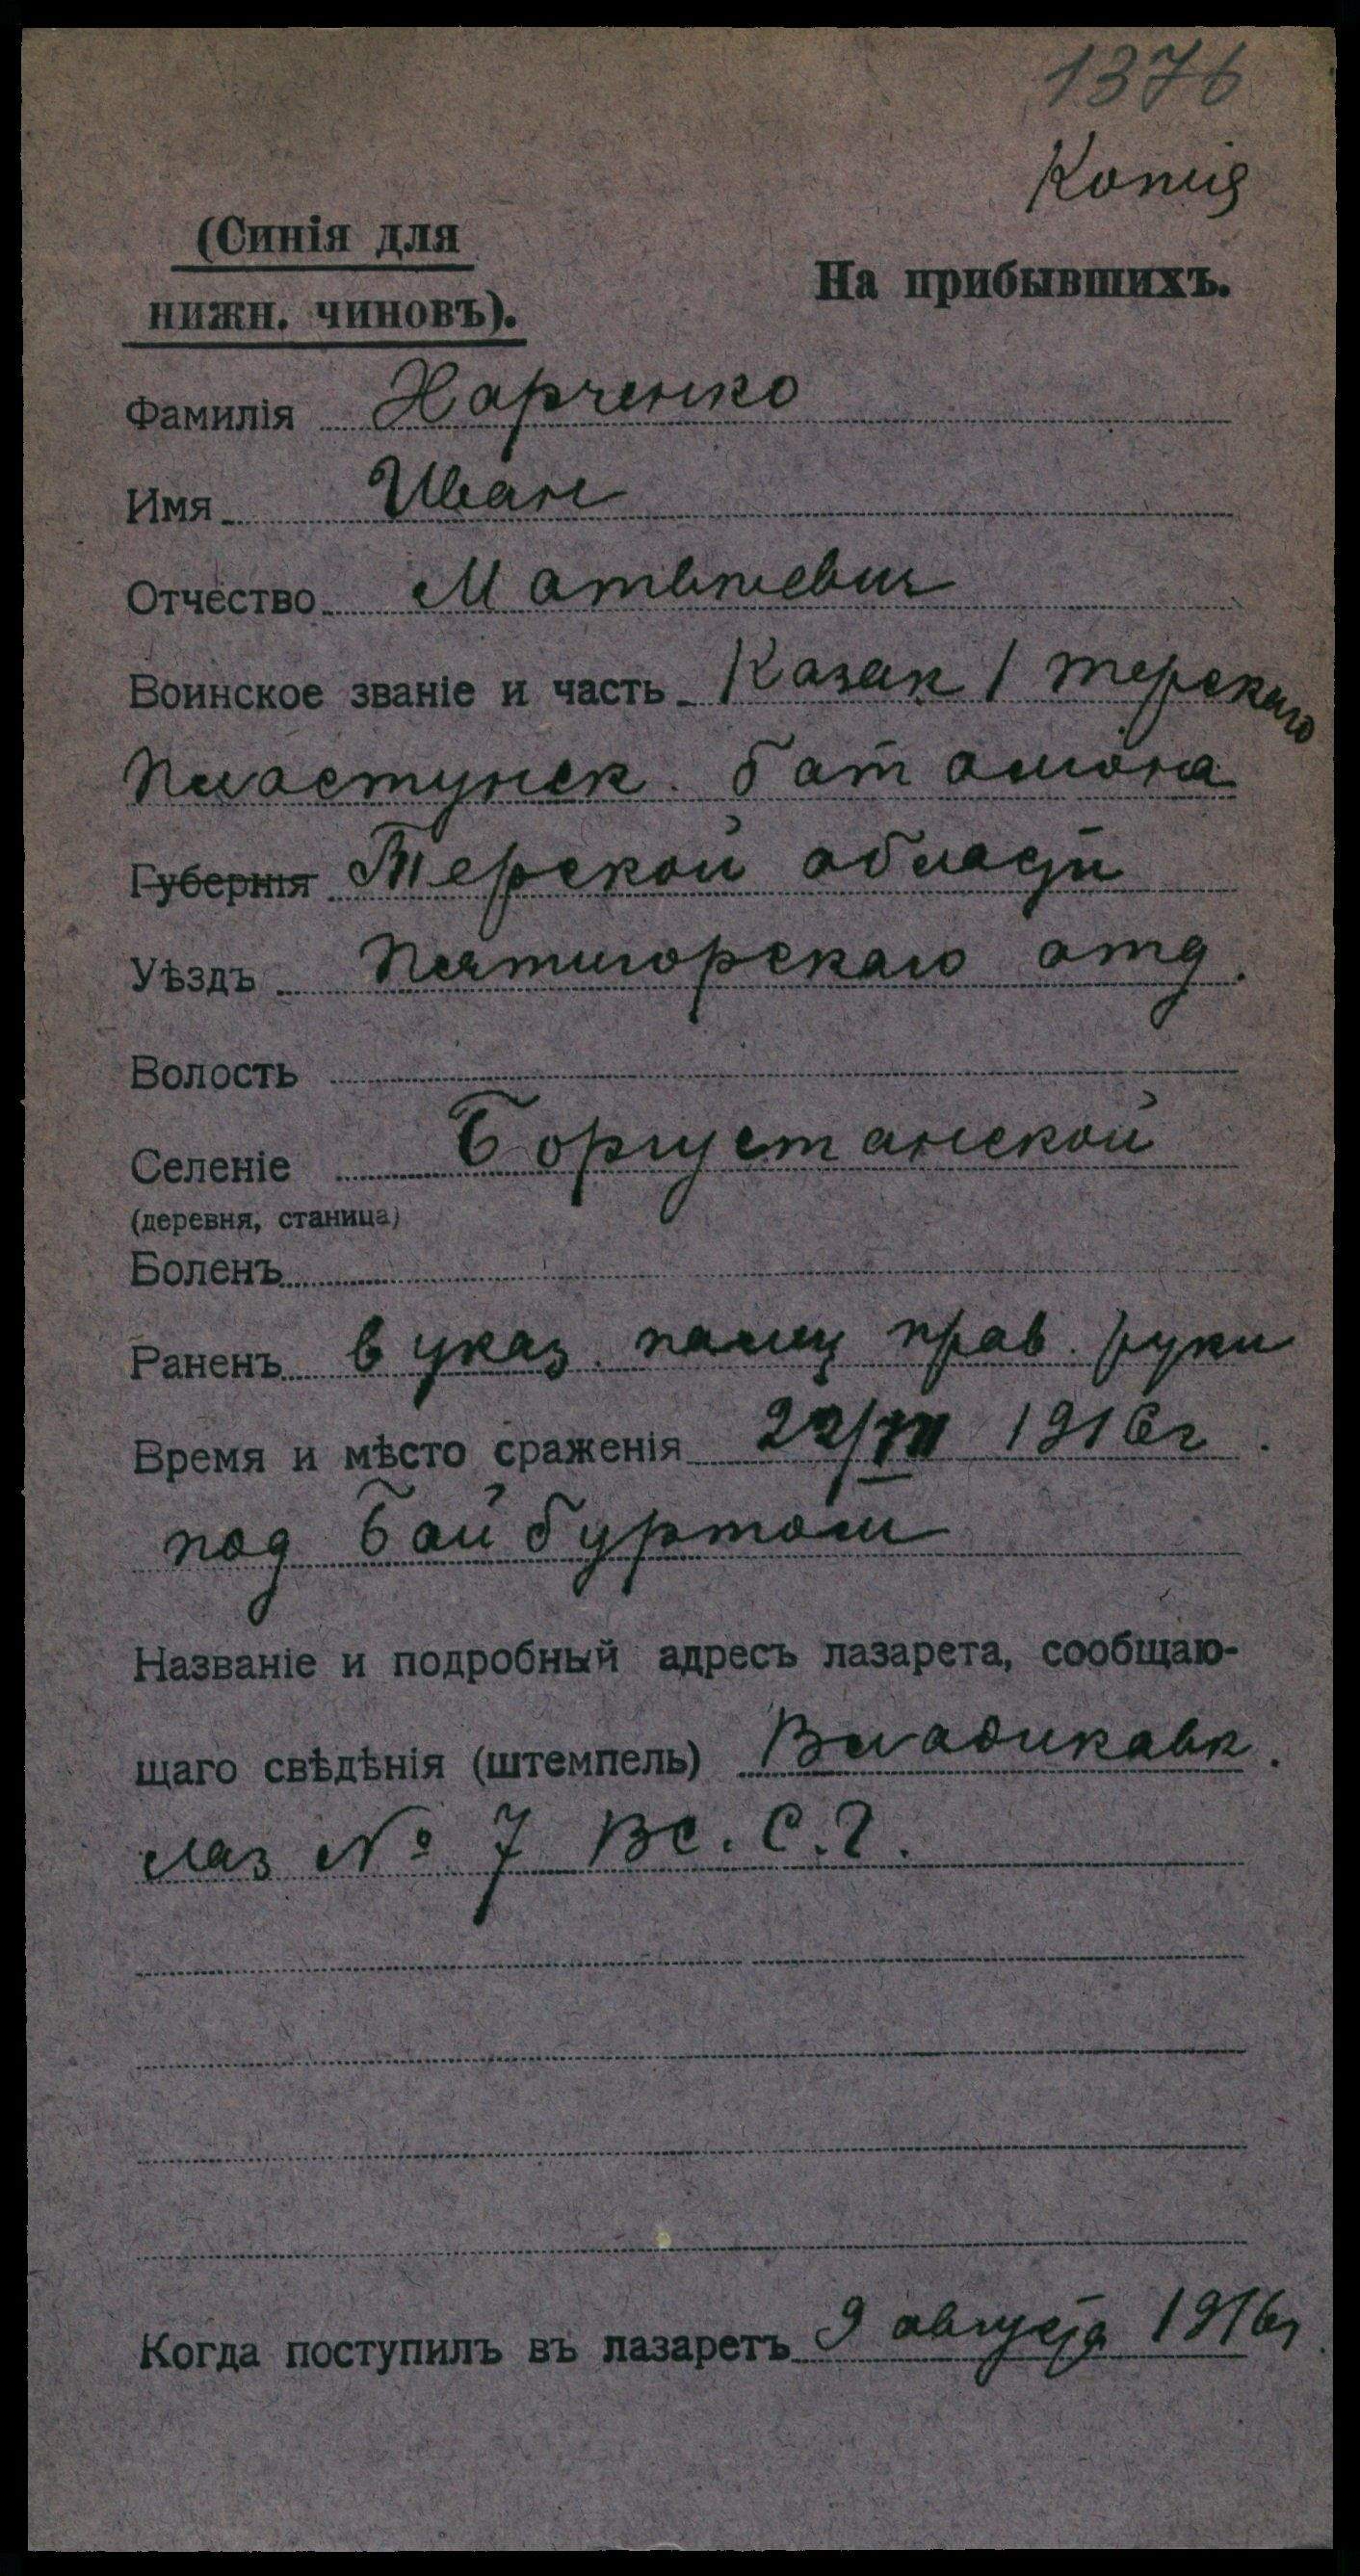 1376
Копия
(Синія для
На прибывшихъ.
нижн. чиновъ).
Фамилія Харченко
Имя Иван
Отчество Матвѣевич
Воинское званіе и часть Казак 1 терскаго
пластунск. баталиона
Губернія Терской области
Уѣздъ Пятигорскаго отд.
Волость
Селеніе Боргустанской
(деревня, станица)
Боленъ
Раненъ в указ. палец прав. руки
Время и мѣсто сраженія 22/VII 1916 г.
под Байбуртом
Названіе и подробный адресъ лазарета, сообщаю-
щаго свѣдѣнія (штемпель) Владикавк.
лаз № 7 Вс. С. Г.
Когда поступилъ въ лазаретъ 9 августа 1916 г.